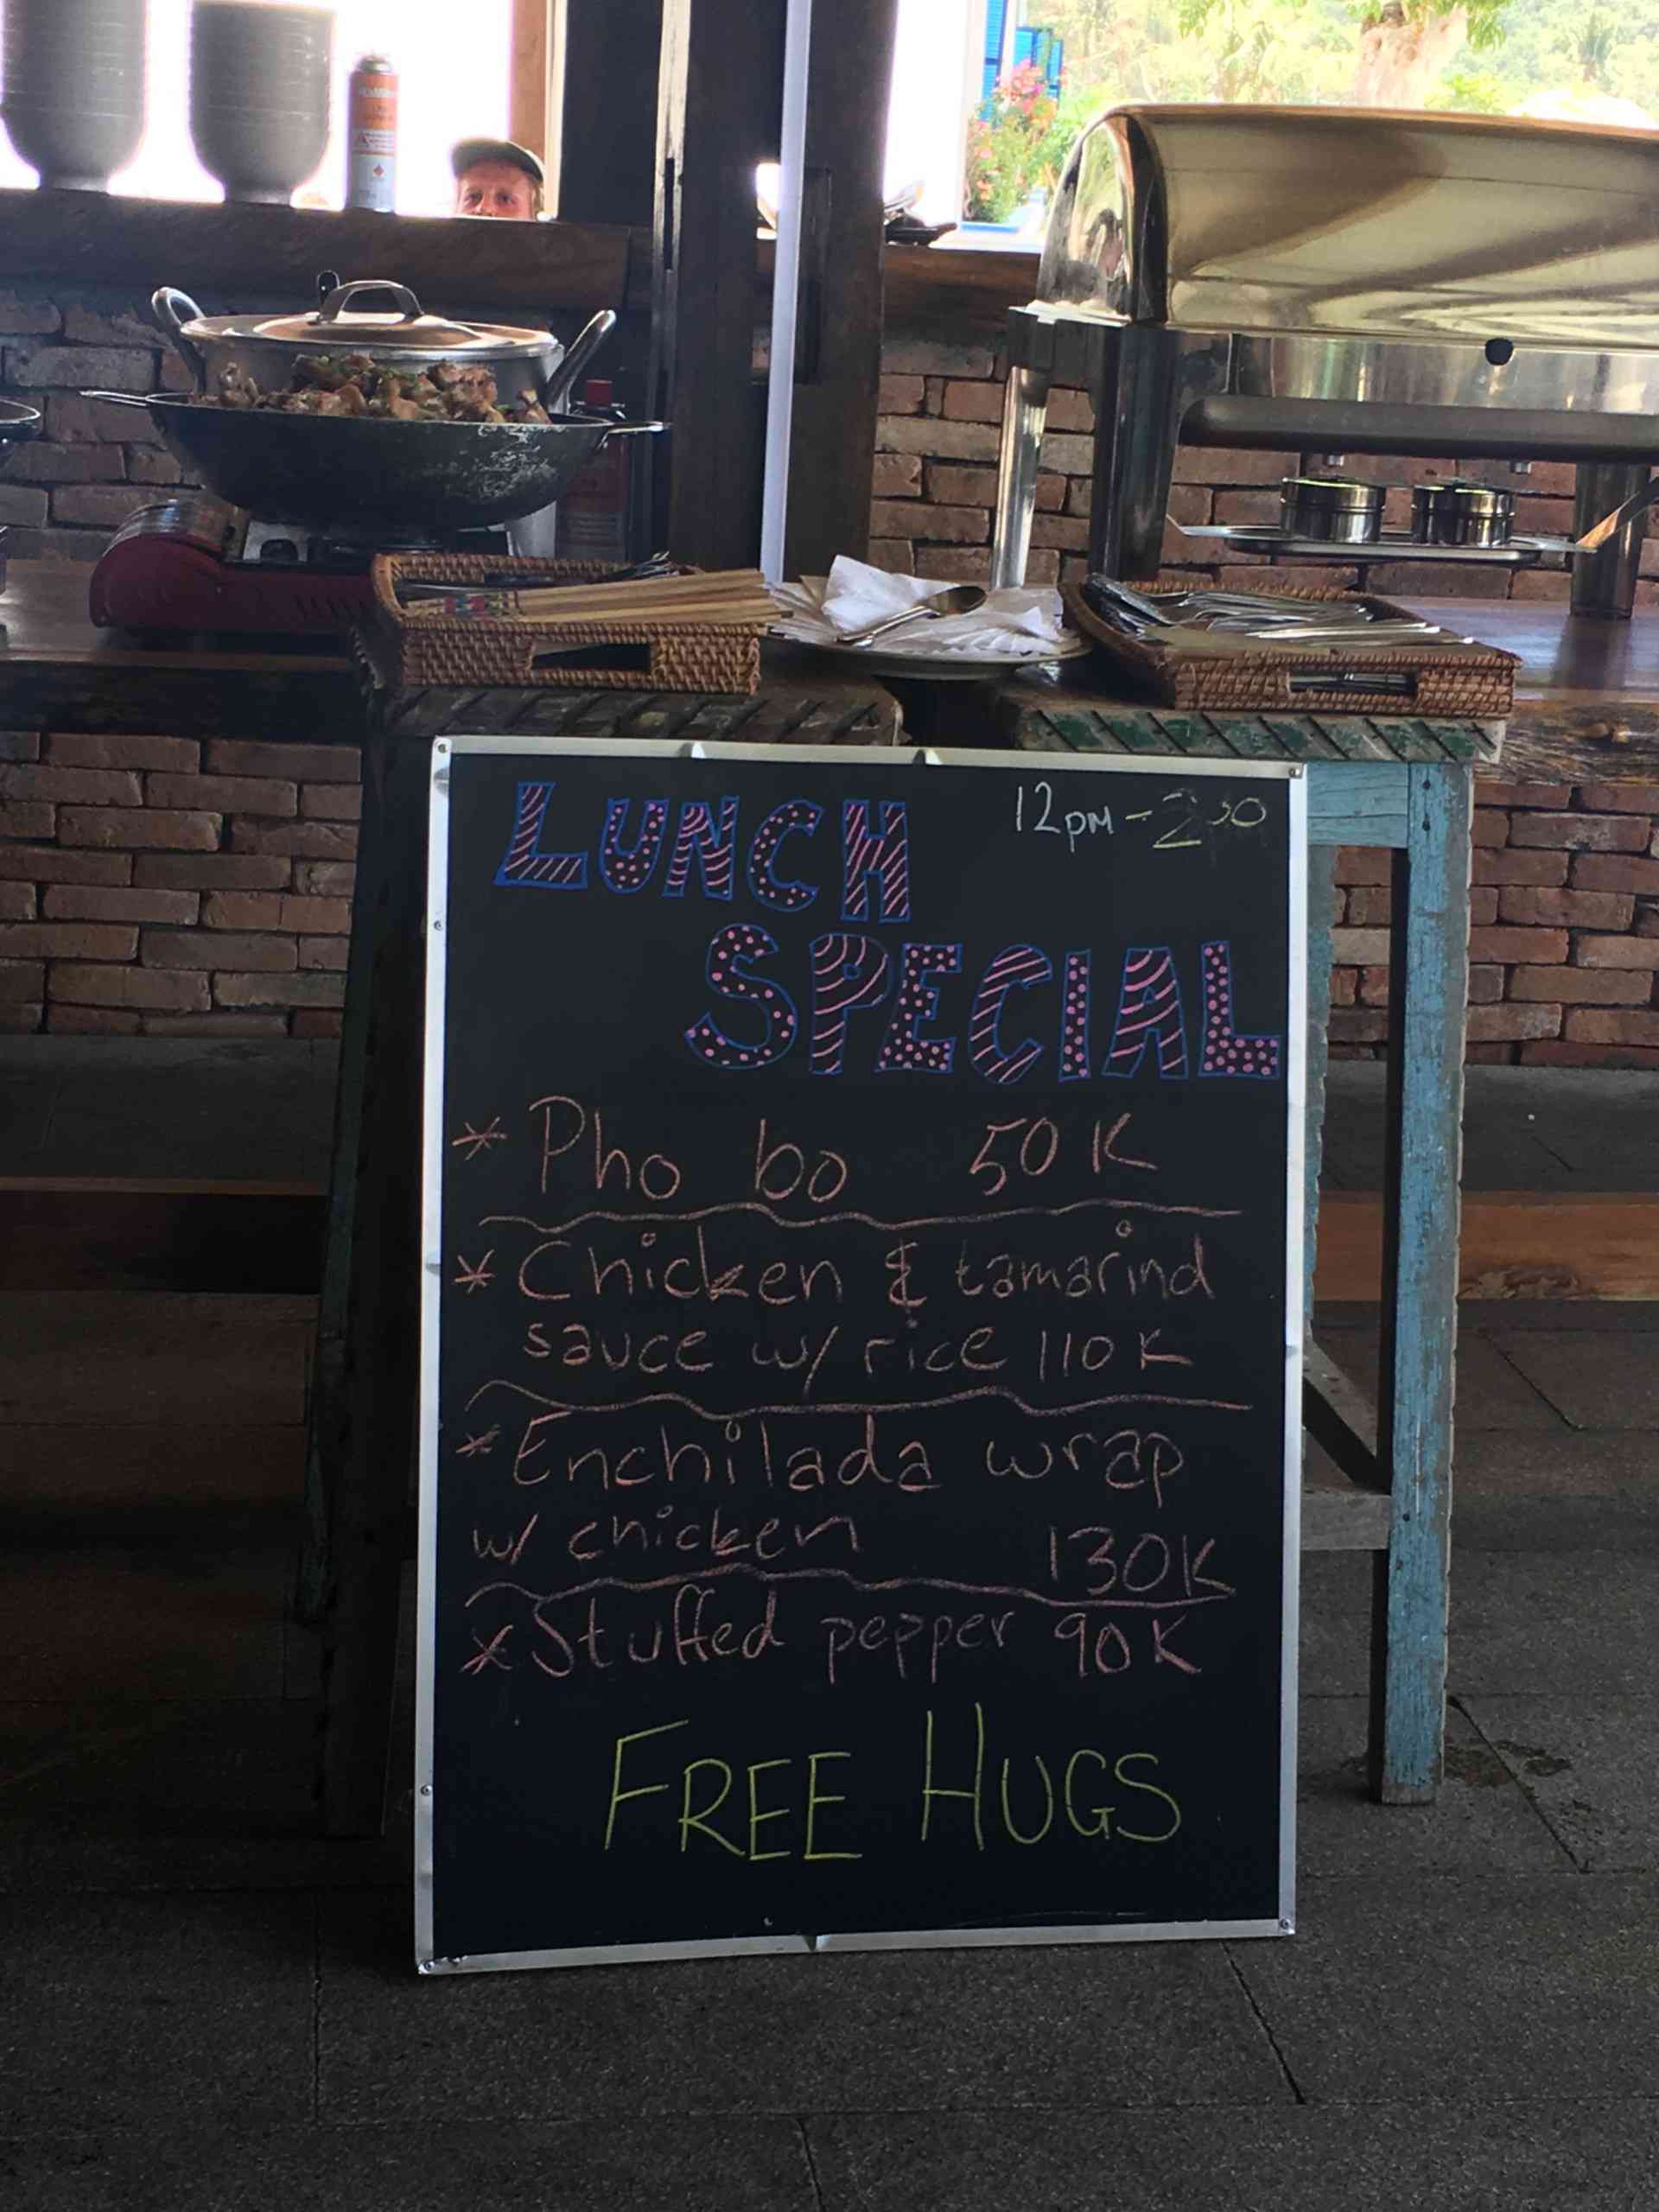 LUNCH
12PM - 2:30
SPECIAL
* Pho bo 50K
* Chicken & tamarind
sauce w/ rice 110K
* Enchilada wrap
w/ chicken 130K
* Stuffed pepper 90K
FREE HUGS